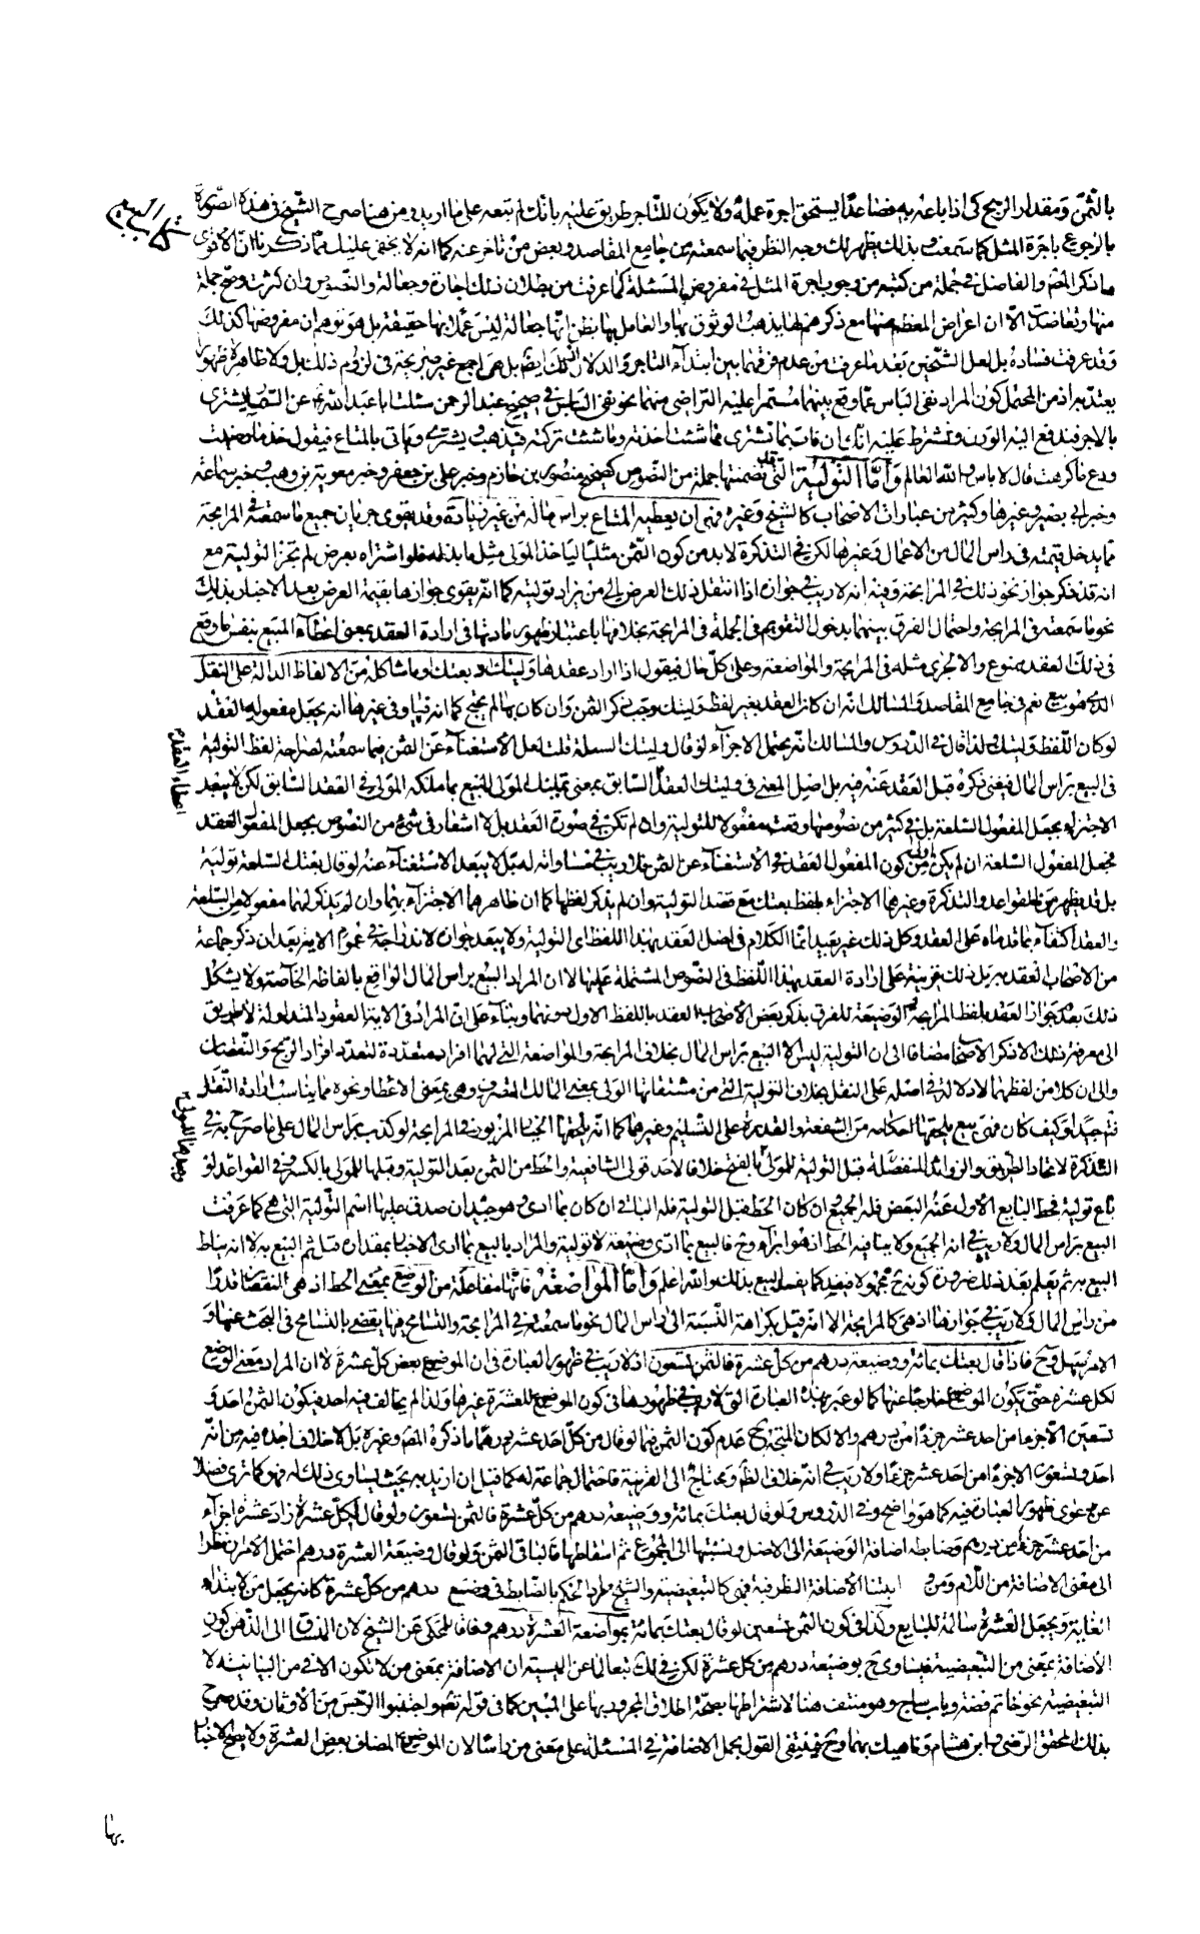 كتاب البيع
بالثمن ومقدار الربح كى اذا باعه به فصاعدا يستحق اجرة عمله ولا يكون للتاجر طريق عليه بانك لم تبعه على ما اريد ومن هنا صرح الشيخ فى هذه الصورة
بالرجوع باجرة المثل كما سمعت وبذلك يظهر لك وجه النظر فيما سمعته من جامع المقاصد وبعض من تاخر عنه كما انه لا يخفى عليك مما ذكرنا ان الاقوى
ما ذكر المص والفاضل فى جملة من كتبه من وجوب اجرة المثل فى مفروض المسئلة كما عرفت من بطلان ذلك اجارة وجعالة والنصوص وان كثرت وصح جملة
منها وتعاضدت الا ان اعراض المعظم عنها مع ذكرهم لها يذهب الوثوق بها والعامل بها بظن انها جعالة ليس عملا بها حقيقة بل هو توهم ان مفروضها كذلك
وقد عرفت فساده بل لعل الشيخين بعد ما عرفت من عدم فرقهما بين ابتداء التاجر والدلال كذلك ايضا بل هى اجمع غير صريحة فى لزوم ذلك بل ولا ظاهرة ظهورا
يعتد به اذ من المحتمل كون المراد نفى الباس عما وقع بينهما مستمرا عليه التراضى منهما نحو نفى الباس فى صحيح عبد الرحمن سئلت ابا عبد الله ع عن السمسار يشترى
بالاجر فيدفع اليه الورق ويشترط عليه انك ان تات بما تشترى فما شئت اخذته وما شئت تركته فيذهب ويشترى وياتى بالمتاع فيقول خذ ما رضيت
ودع ما كرهت قال لا باس والله العالم واما التولية التى تضمنتها جملة من النصوص كصحيح منصور بن حازم وخبر على بن جعفر وخبر معوية بن وهب وخبر سماعة
وخبر ابى بصير وغيرها وكثير من عبارات الاصحاب كالشيخ وغيره فهى ان يعطيه المتاع براس ماله من غير زيادة وقد يقوى جريان جميع ما سمعته فى المرابحة
مما يدخل قيمته فى راس المال من الاعمال وغيرها لكن فى التذكرة لا بد من كون الثمن مثليا لياخذ المولى مثل ما بذله فلو اشتراه بعرض لم تجز التولية مع
انه قد ذكر جواز نحو ذلك فى المرابحة وفيه انه لا ريب فى جوازه اذا انتقل ذلك العرض الى من يراد توليته كما انه يقوى جوازها بقيمة العرض بعد الاخبار بذلك
نحو ما سمعته فى المرابحة واحتمال الفرق بينهما بدخول التقويم فى الجملة فى المرابحة بخلافها باعتبار ظهور مادتها فى ارادة العقد بمعنى اعطاء المبيع بنفس ما وقع
فى ذلك العقد ممنوع والا لجرى مثله فى المرابحة والمواضعة وعلى كل حال فيقول اذا اراد عقدها وليتك او بعتك او ما شاكله من الالفاظ الدالة على النقل
الذى هو بيع نعم فى جامع المقاصد والمسالك انه ان كان العقد بغير لفظ وليتك وجب ذكر الثمن وان كان بها لم يحتج كما ان فيها وفى غيرها انه يجعل مفعوله العقد
لو كان اللفظ وليتك ولذا قال فى الدروس والمسالك انه يحتمل الاجزاء لو قال وليتك السلعة قلت لعل الاستغناء عن الثمن فيما سمعته لصراحة لفظ التولية
فى البيع براس المال فيغنى ذكره قبل العقد عنه فيه بل اصل المعنى فى وليتك العقد السابق بمعنى تمليك المولى المبيع بما ملكه المولى فى العقد السابق لكن لا يبعد
اعطاء العقد
الاجتزاء بجعل المفعول السلعة بل فى كثير من نصوصها وقعت مفعولا للتولية وان لم تكن فى صورة العقد بل لا اشعار فى شىء من النصوص بجعل المفعول العقد
فجعل المفعول السلعة ان لم يكن اولى من كون المفعول العقد فى الاستغناء عن الثمن فلا ريب فى مساواته له بل لا يبعد الاستغناء عنه لو قال بعتك السلعة تولية
بل قد يظهر من القواعد والتذكرة وغيرهما الاجتزاء بلفظ بعتك مع قصد التولية وان لم يذكر لفظها كما ان ظاهرهما الاجتزاء بهما وان لم يذكر لهما مفعولا من السلعة
والعقد اكتفاء بما قدماه على العقد وكل ذلك غير بعيد انما الكلام فى اصل العقد بهذا اللفظ اى التولية ولا يبعد جوازه لاندراجه فى عموم الاية بعد ان ذكر جماعة
من الاصحاب العقد به بل ذلك قرينة على ارادة العقد بهذا اللفظ فى النصوص المشتملة عليها لا ان المراد البيع براس المال لواقع بالفاظه الخاصة ولا يشكل
ذلك بعد جواز العقد بلفظ المرابحة والوضيعة للفرق بذكر بعض الاصحاب العقد باللفظ الاول دونهما وبناء على ان المراد فى الاية العقود المتداولة لا طريق
الى معرفة ذلك الا ذكر الاصحاب مضافا الى ان التولية ليس الا البيع براس المال بخلاف المرابحة والمواضعة التى لهما افراد متعددة لتعدد افراد الربح والنقصان
والى ان كلا من لفظهما لا دلالة فى اصله على النقل بخلاف التولية التى من مشتقاتها الولى بمعنى المالك المتصرف وهى بمعنى الاعطاء ونحوه مما يناسب ارادة النقل
فتم جيدا وكيف كان فهى بيع يلحقها احكامه من الشفعة والقدرة على التسليم وغيرها كما انه يلحقها الخيار المزبور فى المرابحة لو كذب براس المال على ما صرح به فى
التذكرة لاتحاد الطريق والزوائد المنفصلة قبل التولية للمولى بالفتح خلافا لاحد قولى الشافعية والحط من الثمن بعد التولية وقبلها للمولى بالكسر وفى القواعد لو
باع تولية فحط البايع الاول عنه البعض فله الجميع وان كان الحط قبل التولية فله الباقى ان كان بما ادى وهو جيد ان صدق عليها اسم التولية التى هى كما عرفت
البيع براس المال ولا ريب فى انه الجميع ولا ينافيه الحط اذ هو ابراء وح فالبيع بما ادى وضيعة لا تولية والمراد بالبيع بما ادى الاخبار بمقداره قبل ثم البيع به لا انه يناط
البيع به ثم يعلم بعد ذلك ضرورة كونه ح مجهولا فيفسد كما يفسد البيع بذلك والله اعلم واما المواضعة فانها مفاعلة من الوضع بمعنى الحط اذ هى النقصان قدرا
من راس المال ولا ريب فى جوازها اذ هى كالمرابحة الا انه قيل بكراهة النسبة الى راس المال نحو ما سمعته فى المرابحة والتسامح فيها يقضى بالتسامح فى البحث عنها و
الامر سهل وح فاذا قال بعتك بمائة ووضيعة درهم من كل عشرة فالثمن تسعون اذ لا ريب فى ظهور العبارة فى ان الموضوع بعض كل عشرة لا ان المراد معنى الوضع
لكل عشرة حتى يكون الموضوع خارجا عنها كما لو عبر بهذه العبارة التى لا ريب فى ظهورها فى كون الموضوع للعشرة غيرها ولذا لم يخالف فيه احد فيكون الثمن احد و
تسعين الا جزءا من احد عشر جزءا من درهم والا لكان المتجه ح عدم كون الثمن فيما لو قال من كل احد عشر درهما ما ذكره المص وغيره بل لا خلاف اجده فيه من انه
احد وتسعون الا جزءا من احد عشر جزءا ولا ريب فى انه خلاف الظ ومحتاج الى القرينة فاحتمال جماعة له كما قيل ان اريد به بحيث يساوى ذلك له فهو كما ترى فضلا
عن دعوى ظهور العبارة فيه كما هو واضح وفى الدروس ولو قال بعتك بمائة ووضيعة درهم من كل عشرة فالثمن تسعون ولو قال لكل عشرة زاد عشرة اجزاء
من احد عشر جزءا من درهم وضابطه اضافة الوضيعة الى الاصل ونسبتها الى المجموع ثم اسقاطها فالباقى الثمن ولو قال وضيعة العشرة درهم احتمل الامرين نظرا
الى معنى الاضافة من اللام ومن ابينا الاضافة الظرفية فهى كالتبعيضية والشيخ طرد الحكم بالضابط فى وضيع درهم من كل عشرة كانه يجعل من لابتداء
الغاية ويجعل العشرة سالمة للبايع وكذا فى كون الثمن تسعين لو قال بعتك بمائة بمواضعة العشرة درهم وفاقا للمحكى عن الشيخ لان المنساق الى الذهن كون
الاضافة بمعنى من التبعيضية فيساوى ح بوضيعة درهم من كل عشرة لكن فى لك تبعا لما عن الميسية ان الاضافة بمعنى من لا تكون الا فى من البيانية لا
التبعيضية نحو خاتم فضة وباب ساج وهو منتف هنا لاشتراطها بصحة اطلاق المجرور بها على المبين كما فى قوله تعو اجتنبوا الرجس من الاوثان وقد صرح
بذلك المحقق الرضى وابن هشام وناهيك بهما وح فينتفى القول بحمل الاضافة فى المسئلة على معنى من راسا لان الموضوع المضاف بعض العشرة ولا يصح الاخبار
بها